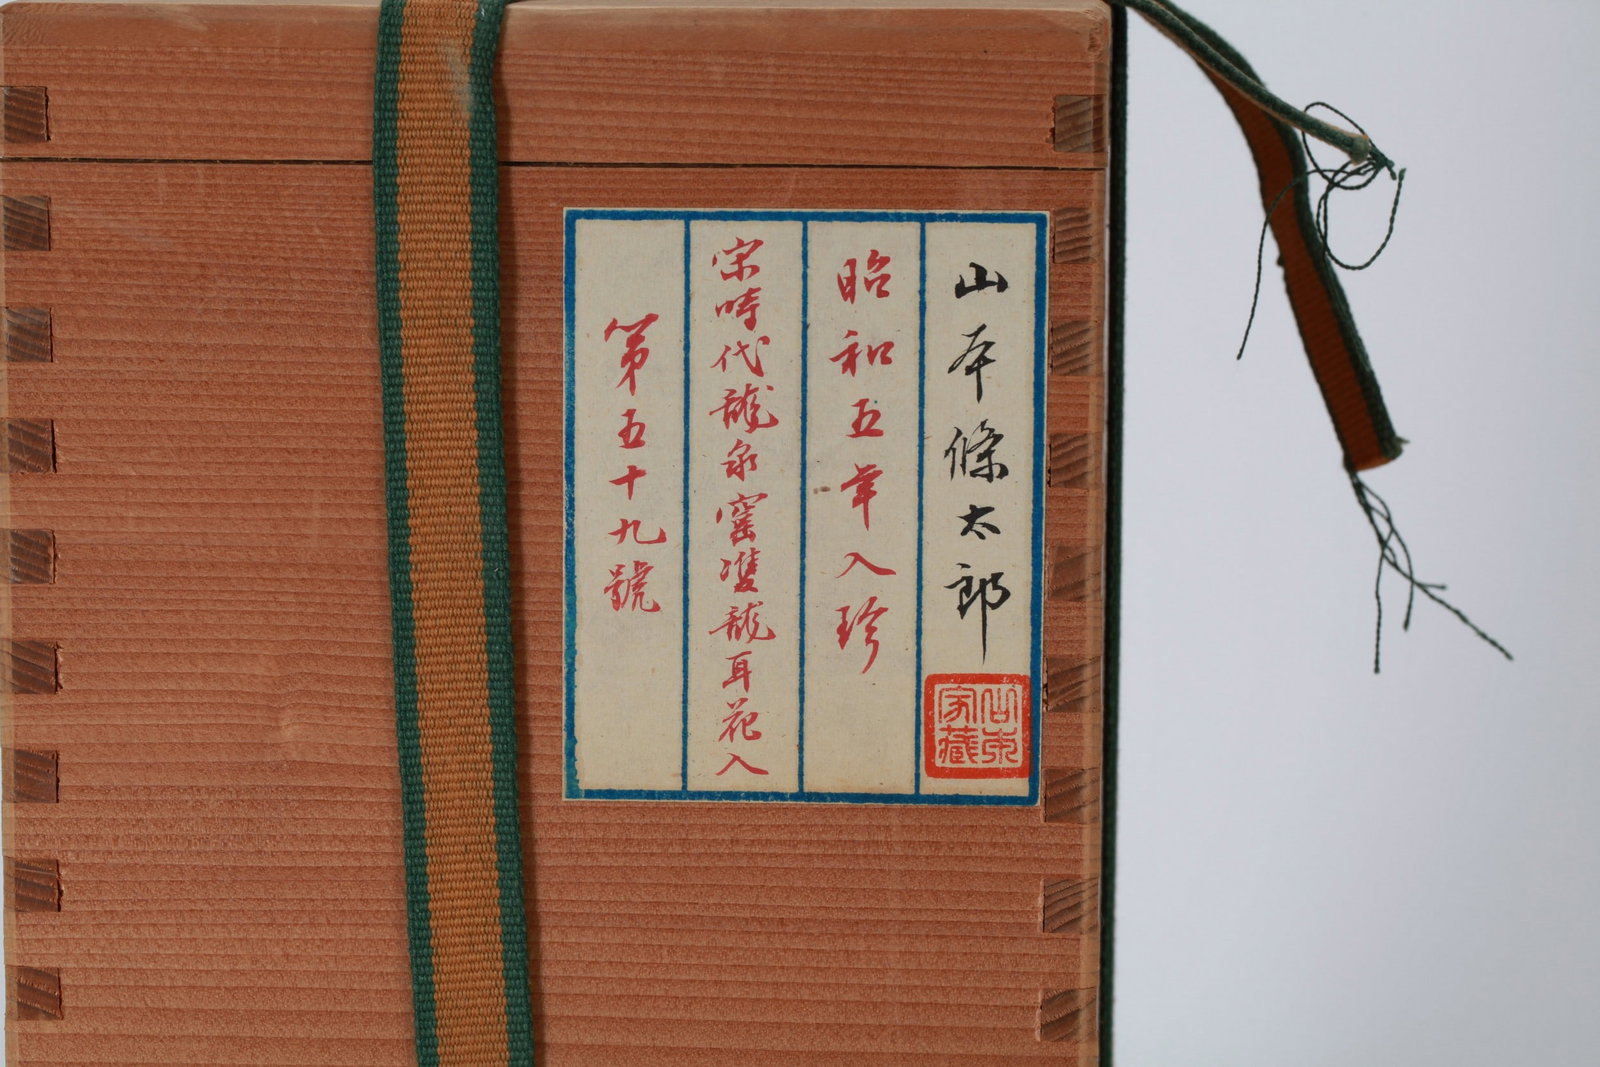 山本條太郎
山本家藏
昭和五年入珍
宋時代龍泉窰雙龍耳花入
第五十九號